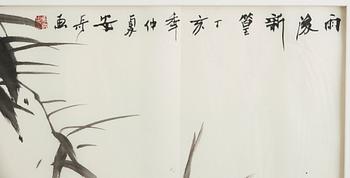 雨後新篁丁亥季仲夏安丹画